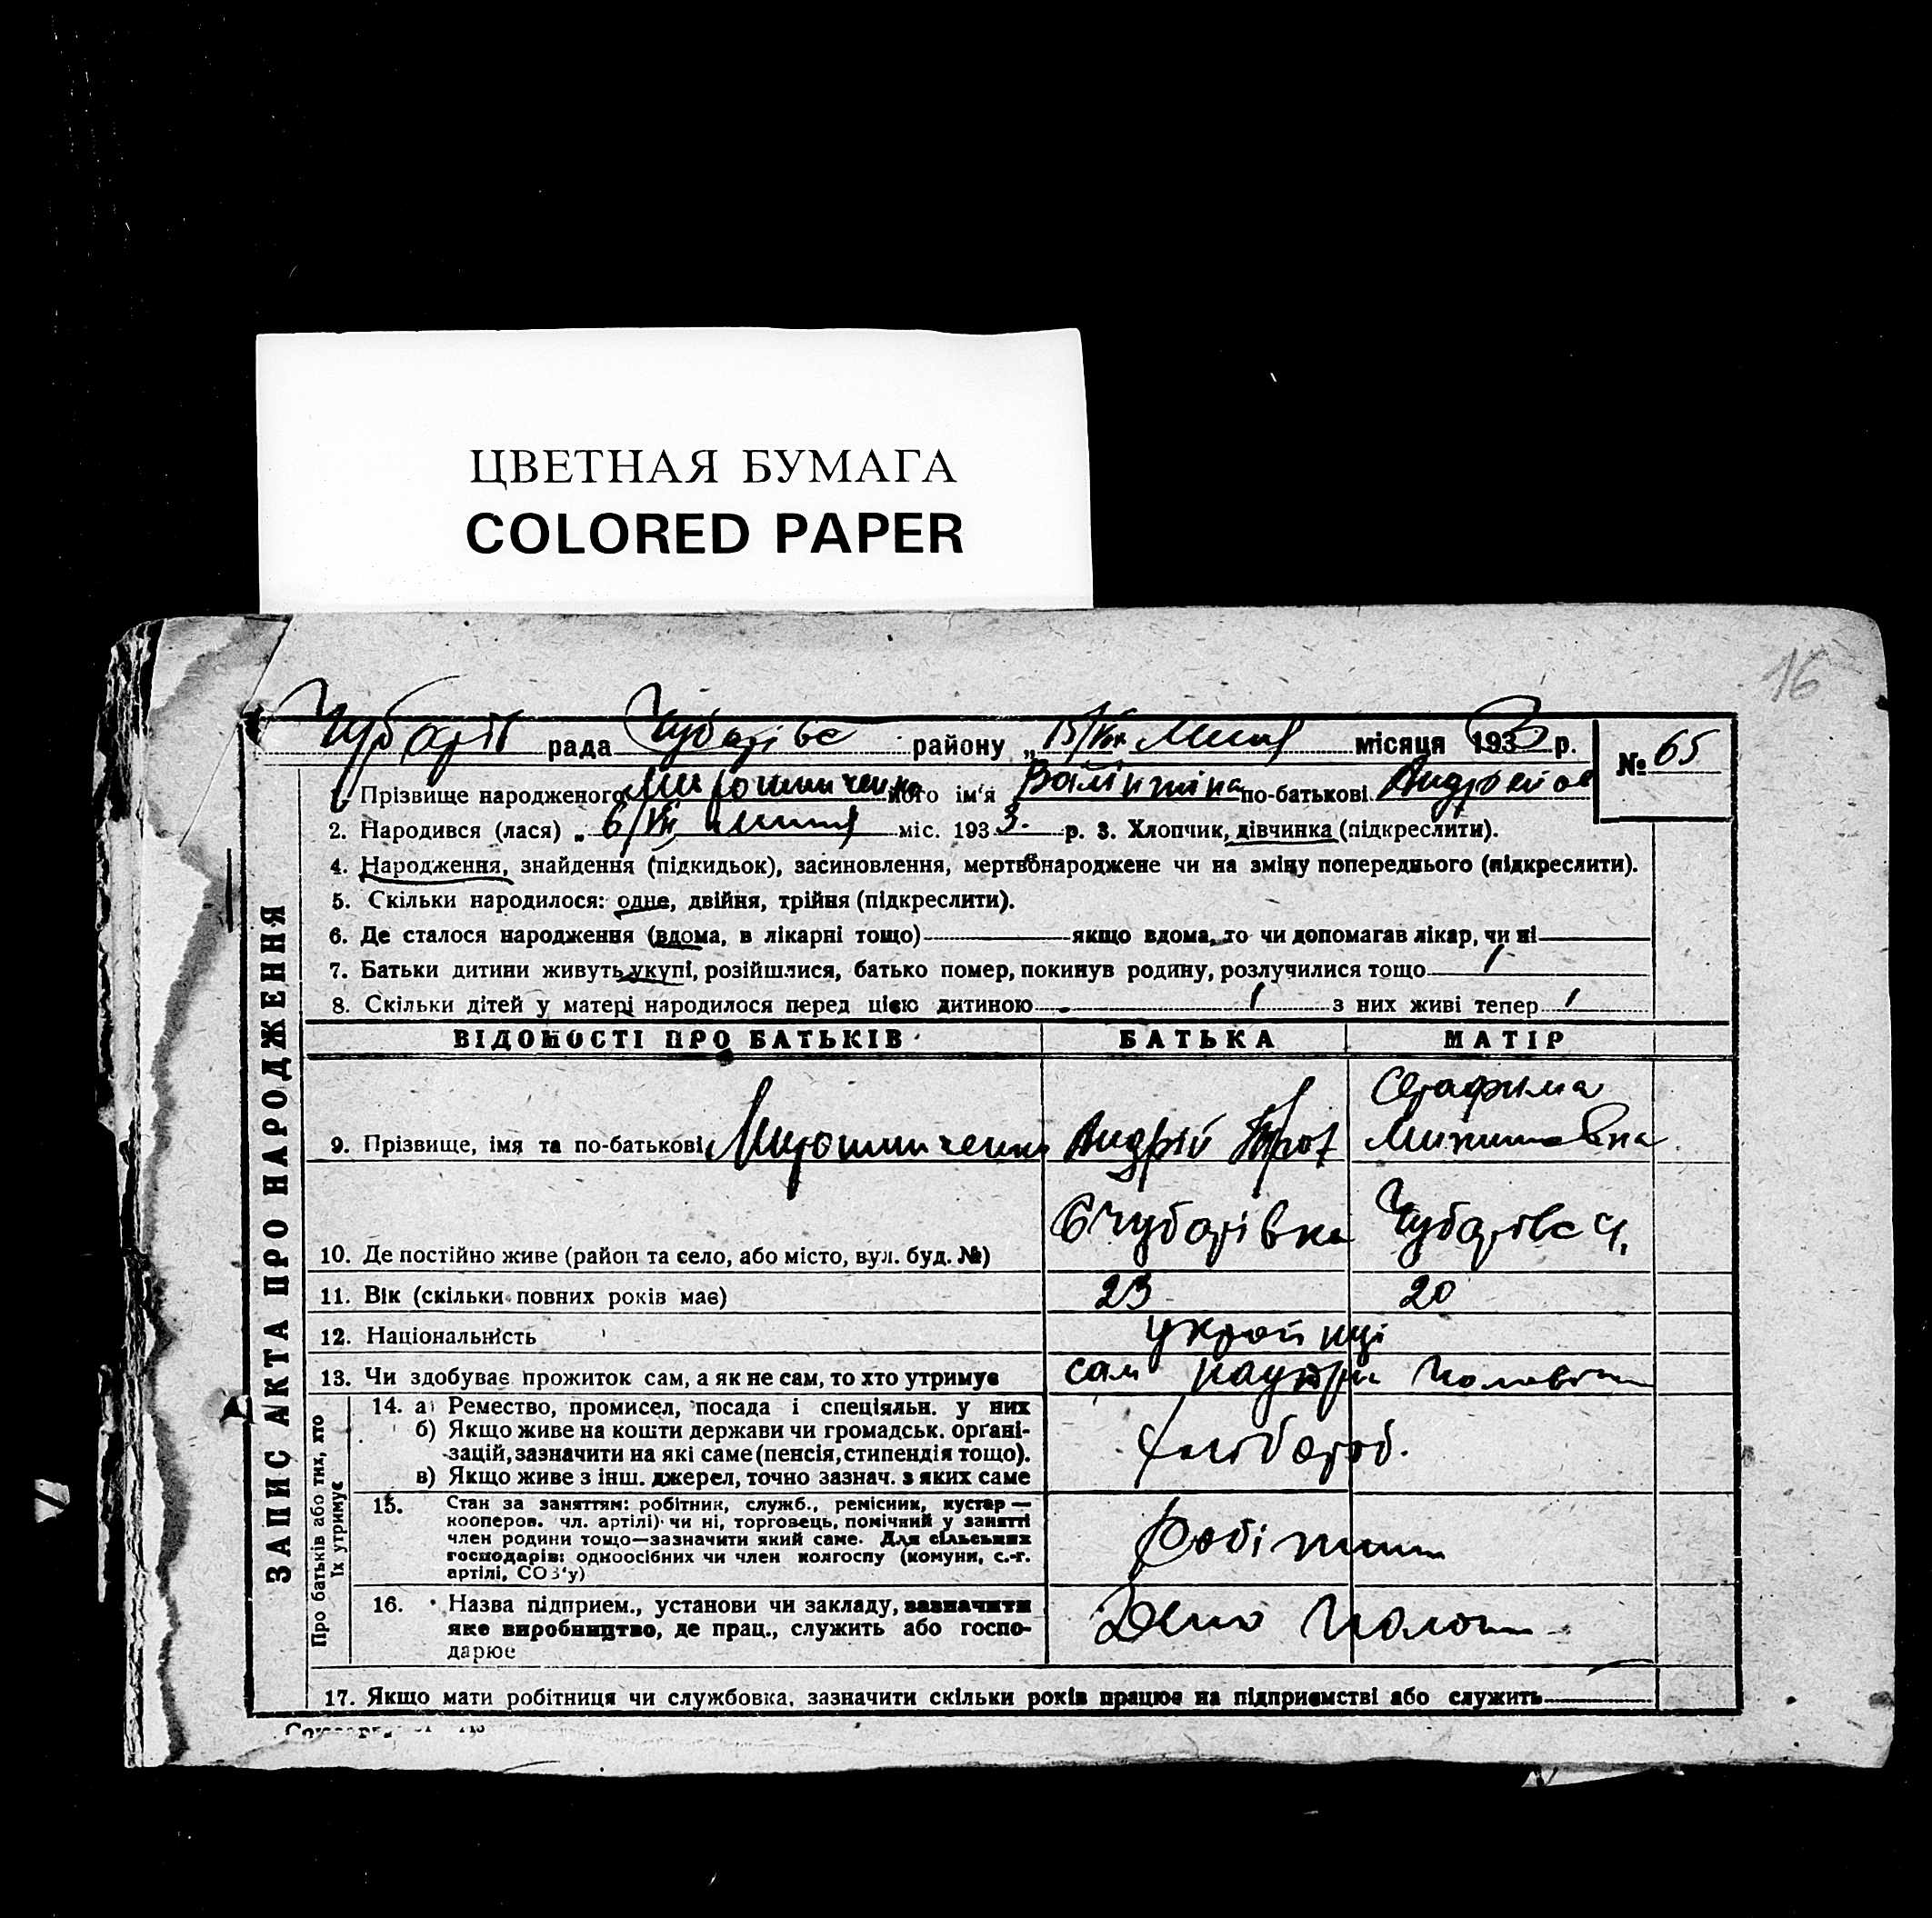 ЦВЕТНАЯ БУМАГА
COLORED PAPER
16
рада Чубарівс району „15/VII місяця 1933 р. № 65
ЗАПИС АКТА ПРО НАРОДЖЕННЯ
1. Прізвище народженого Мирошниченко його ім'я Валінтіна по-батькові Андрейов
2. Народився (лася) „ 6/VII липня міс. 1933. р. 3. Хлопчик, дівчинка (підкреслити).
4. Народження, знайдення (підкидьок), засиновлення, мертвонароджене чи на зміну попереднього (підкреслити).
5. Скільки народилося: одне, двійня, трійня (підкреслити).
6. Де сталося народження (вдома, в лікарні тощо) якщо вдома, то чи допомагав лікар, чи ні
7. Батьки дитини живуть укупі, розійшлися, батько помер, покинув родину, розлучилися тощо
8. Скільки дітей у матері народилося перед цією дитиною 1 з них живі тепер 1
ВІДОМОСТІ ПРО БАТЬКІВ БАТЬКА МАТІР
9. Прізвище, імя та по-батькові Мирошниченко Андрій Серафима
10. Де постійно живе (район та село, або місто, вул. буд. №) Чубарівка Чубарівс
11. Вік (скільки повних років має) 23 20
12. Національність українці
13. Чи здобуває прожиток сам, а як не сам, то хто утримує сам
Про батьків або тих, хто їх утримує
14. а) Ремество, промисел, посада і спеціяльн. у них
б) Якщо живе на кошти держави чи громадськ. органі-
зацій, зазначити на які саме (пенсія, стипендія тощо).
в) Якщо живе з інш. джерел, точно зазнач. з яких саме
хлібороб.
15. Стан за заняттям: робітник, служб., ремісник, кустар —
кооперов. чл. артілі) чи ні, торговець, помічний у занятті
член родини тощо—зазначити який саме. Для сільських
господарів: одноосібних чи член колгоспу (комуни, с.-г.
артілі, СОЗ'у)
робітник
16. Назва підприєм., установи чи закладу, зазначити
яке виробництво, де прац., служить або госпо-
дарює
17. Якщо мати робітниця чи службовка, зазначити скільки років працює на підприємстві або служить